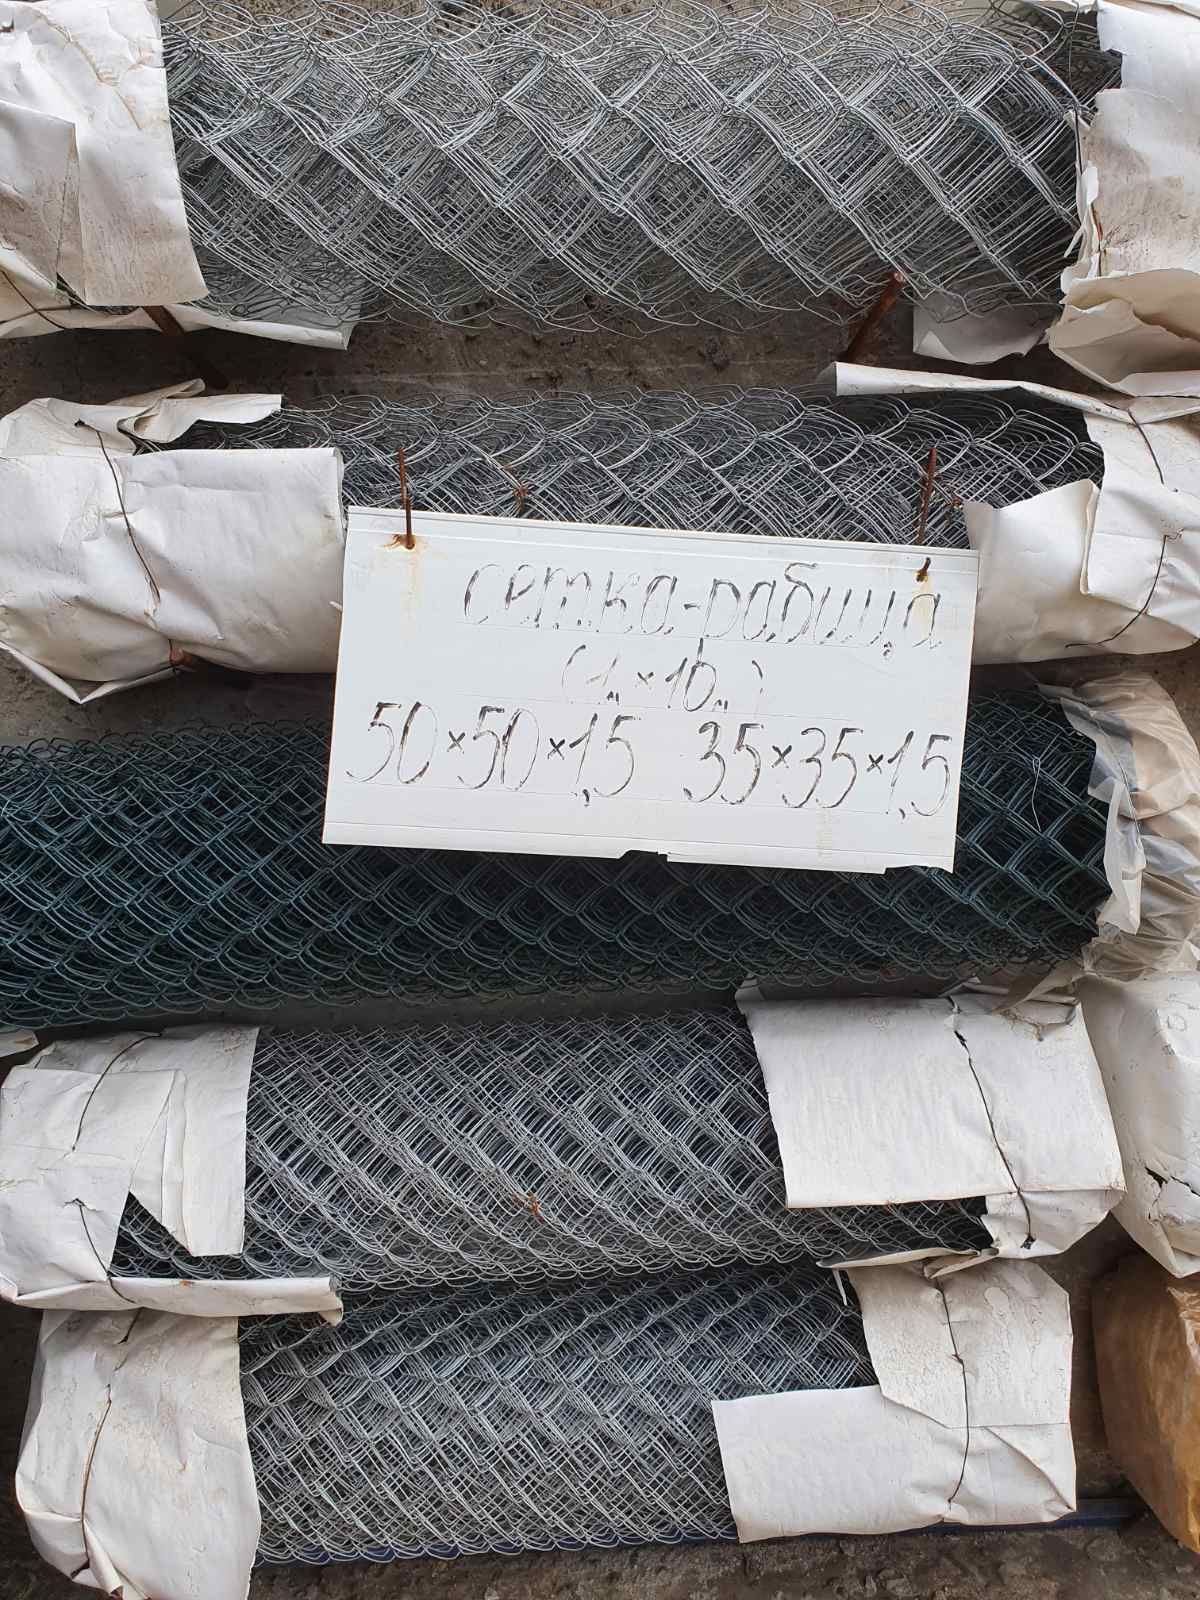 сетка-рабица
(1м×10м)
50×50×1,5 35×35×1,5